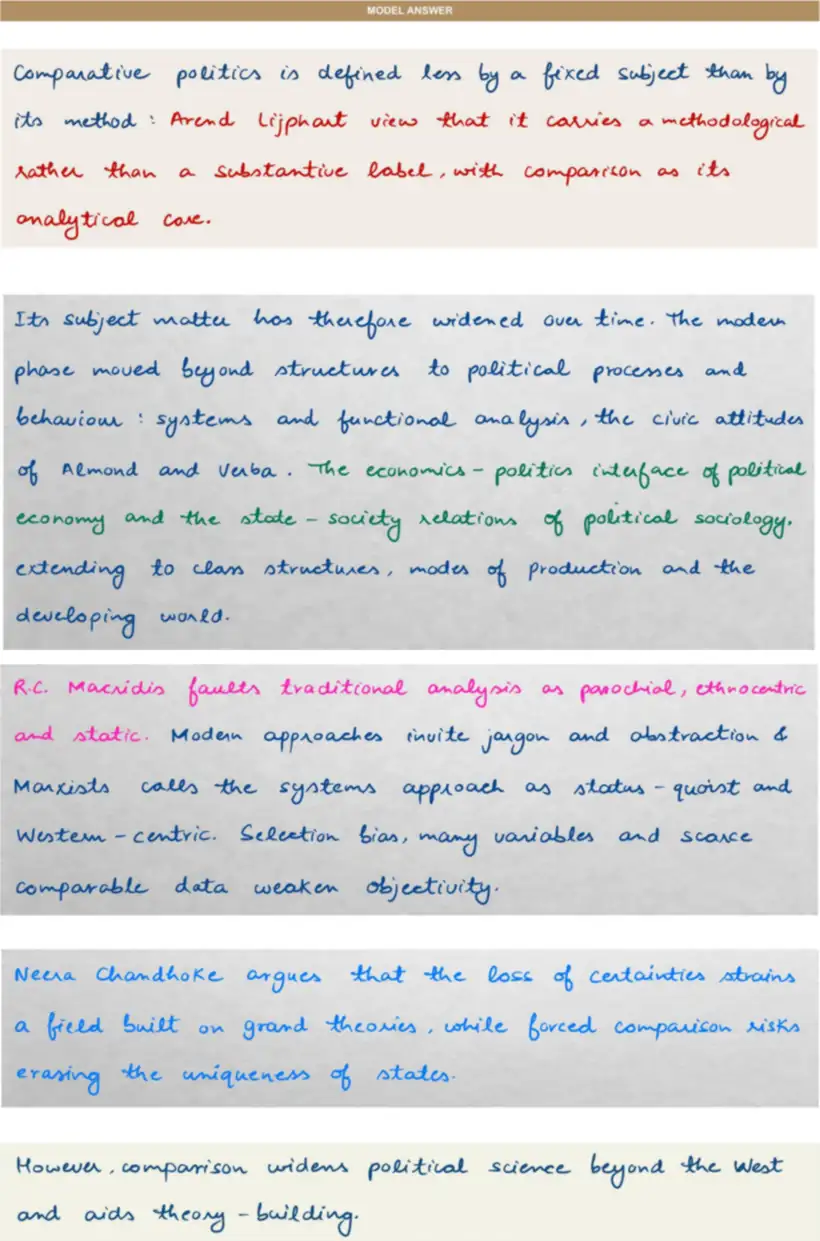 MODEL ANSWER
Comparative politics is defined less by a fixed subject than by
its method : Arend Lijphart view that it carries a methodological
rather than a substantive label, with comparison as its
analytical core.
Its subject matter has therefore widened over time. The modern
phase moved beyond structures to political processes and
behaviour : systems and functional analysis, the civic attitudes
of Almond and Verba. The economics - politics interface of political
economy and the state - society relations of political sociology.
extending to class structures, modes of production and the
developing world.
R.C. Macridis faults traditional analysis as parochial, ethnocentric
and static. Modern approaches invite jargon and abstraction &
Marxists calls the systems approach as status - quoist and
Western - centric. Selection bias, many variables and scarce
comparable data weaken objectivity.
Neera Chandhoke argues that the loss of certainties strains
a field built on grand theories, while forced comparison risks
erasing the uniqueness of states.
However, comparison widens political science beyond the West
and aids theory - building.